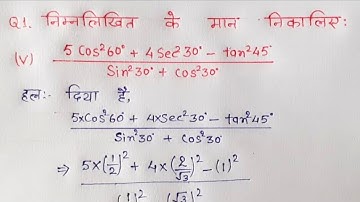 Q1. निम्नलिखित के मान निकालिए:
(v) (5 Cos²60° + 4Sec²30° - tan²45°) / (Sin²30° + Cos²30°)
हलः- दिया है,
(5×Cos²60° + 4×Sec²30° - tan²45°) / (Sin²30° + Cos²30°)
⇒ (5×(1/2)² + 4×(2/√3)² - (1)²) /